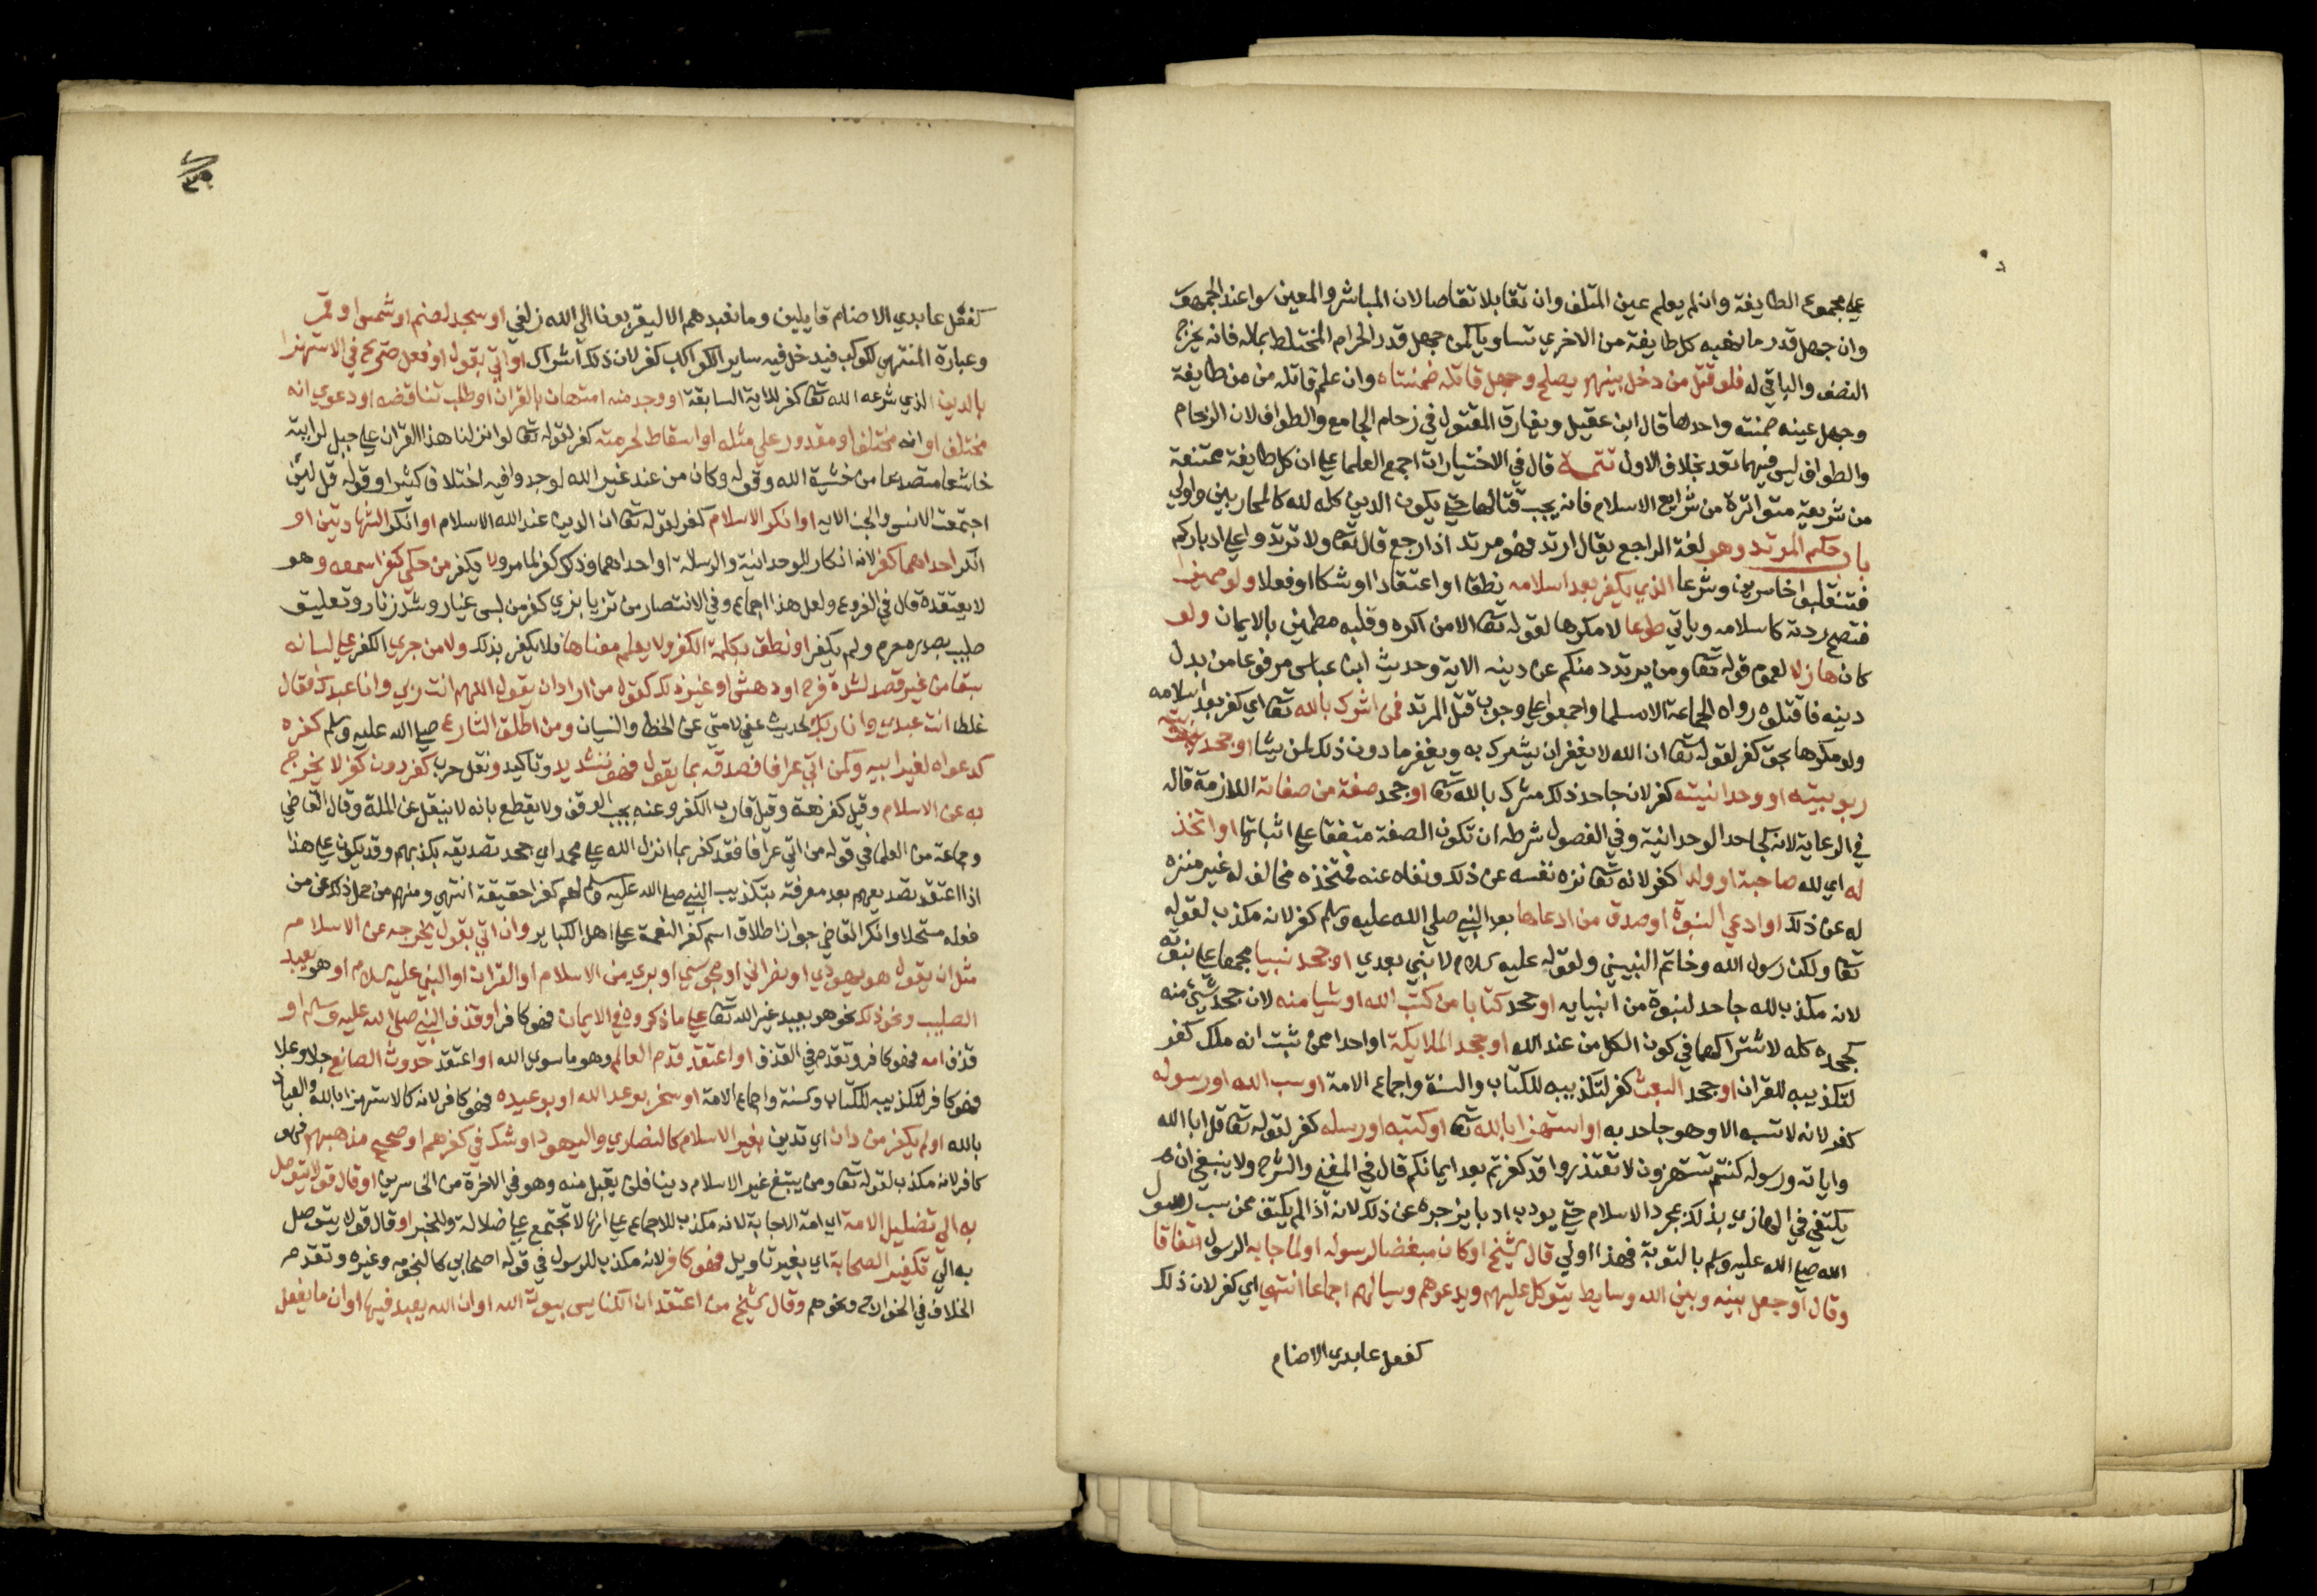 علي مجموع الطايفة وان لم يعلم عين المتلف وان تقابلا تقاصا لان المباشر والمعين سوا عند الجمهور
وان جهل قدر ما نهبه كل طايفة من الاخري تساويا كمن جهل قدر الحرام المختلط بماله فانه يخرج
النصف والباقي له فلو قتل من دخل بينهم يصلح وجهل قاتله ضمنتاه وان علم قاتله من من طايفة
وجهل عينه ضمنته واحدها قال ابن عقيل ويفارق المقتول في زحام الجامع والطواف لان الزحام
والطواف ليس فيهما تعد بخلاف الاول تتمة قال في الاختيارات اجمع العلما علي ان كل طايفة ممتنعة
من شريعة متواترة من شرايع الاسلام فانه يجب قتالها حتي يكون الدين كله لله كالمحاربين واولي
باب حكم المرتد وهو لغة الراجع يقال ارتد فهو مرتد اذا رجع قال تعا ولا ترتدوا علي ادباركم
فتنقلبوا خاسرين وشرعا الذي يكفر بعد اسلامه نطقا او اعتقادا او شكا او فعلا ولو مميزا
فتصح ردته كاسلامه وياتي طوعا لا مكرها لقوله تعا الا من اكره وقلبه مطمين بالايمان ولو
كان هازلا لعموم قوله تعا ومن يرتدد منكم عن دينه الاية وحديث ابن عباس مرفوعا من بدل
دينه فاقتلوه رواه الجماعة الا مسلما واجمعوا علي وجوب قتل المرتد فمن اشرك بالله تعا اي كفر بعد اسلامه
ولو مكرها بحق كفر لقوله تعا ان الله لا يغفر ان يشرك به ويغفر ما دون ذلك لمن يشا او جحد
ربوبيته او وحدانيته كفر لان جاحد ذلك مشرك بالله تعا او جحد صفة من صفاته اللازمة قاله
في الرعاية لانه كجاحد الوحدانية وفي الفصول شرطه ان تكون الصفة متفقا علي اثباتها او اتخذ
له اي لله صاحبة او ولدا كفر لانه تعا نزه نفسه عن ذلك ونفاه عنه فمتخذه مخالف له غير منزه
له عن ذلك او ادعي النبوة او صدق من ادعاها بعد النبي صلي الله عليه وسلم كفر لانه مكذب لقوله
تعا ولكن رسول الله وخاتم النبيين ولقوله عليه سلام لا نبي بعدي او جحد نبيا مجمعا علي نبوته
لانه مكذب لله جاحد لنبوة من انبيايه او جحد كتابا من كتب الله او شيا منه لان جحد شي منه
كجحده كله لاشتراكهما في كون الكل من عند الله او جحد الملايكة او احدا ممن ثبت انه ملك كفر
لتكذيبه للقران او جحد البعث كفر لتكذيبه للكتاب والسنة واجماع الامة او سب الله او رسوله
كفر لانه لا يسبه الا وهو جاحد به او استهزا بالله تعا او كتبه او رسله كفر لقوله تعا قل ابالله
واياته ورسوله كنتم تستهزون لا تعتذروا قد كفرتم بعد ايمانكم قال في المغني والشرح ولا ينبغي ان
يكتفي في الهازي بذلك بمجرد الاسلام حتي يودب ادبا يزجره عن ذلك لانه اذا لم يكتف ممن سب رسول
الله صلي الله عليه وسلم بالتوبة فهذا اولي قال الشيخ او كان مبغضا لرسوله او لما جا به الرسول اتفاقا
وقال او جعل بينه وبين الله وسايط يتوكل عليهم ويدعوهم ويسالهم اجماعا انتهي اي كفر لان ذلك
كفعل عابدي الاصنام
كفعل عابدي الاصنام قايلين وما نعبدهم الا ليقربونا الي الله زلفي او سجد لصنم او شمس او قمر
وعبارة المنتهي لكوكب فيدخل فيه ساير الكواكب كفر لان ذلك اشراك او اتي بقول او فعل صريح في الاستهزا
بالدين الذي شرعه الله تعا كفر للاية السابقة او وجد منه امتهان بالقران او طلب تناقضه او دعوي انه
مختلف او انه مختلق او مقدور علي مثله او اسقاط لحرمته كفر لقوله تعا لو انزلنا هذا القران علي جبل لرايته
خاشعا متصدعا من خشية الله وقوله وكان من عند غير الله لوجدوا فيه اختلافا كثيرا وقوله قل لين
اجتمعت الانس والجن الاية او انكر الاسلام كفر لقوله تعا ان الدين عند الله الاسلام او انكر الشهادتين او
انكر احداهما كفر لانه انكار للوحدانية والرسالة او احداهما وذلك كفر لما مر ولا يكفر من حكي كفرا سمعه وهو
لا يعتقده قال في الفروع ولعل هذا اجماع وفي الانتصار من تزيا بزي كفر من لبس غيار وشد زنار وتعليق
صليب بصدره حرم ولم يكفر او نطق بكلمة الكفر ولا يعلم معناها فلا يكفر بذلك ولا من جري الكفر علي لسانه
سبقا من غير قصد لشدة فرح او دهش او غير ذلك كقول من اراد ان يقول اللهم انت ربي وانا عبدك فقال
غلطا انت عبدي وانا ربك لحديث عفي لامتي عن الخطا والنسيان ومن اطلق الشارع صلي الله عليه وسلم كفره
كدعواه لغير ابيه وكمن اتي عرافا فصدقه بما يقول فهو تشديد وتاكيد ونقل حرب كفر دون كفر لا يخرج
به عن الاسلام وقيل كفر نعمة وقيل قارب الكفر وعنه يجب الوقف ولا يقطع بانه لا ينقل عن الملة وقال القاضي
وجماعة من العلما في قوله من اتي عرافا فقد كفر بما انزل الله علي محمد اي جحد تصديقه بكذبهم وقد يكون علي هذا
اذا اعتقد تصديقهم بعد معرفته بتكذيب النبي صلي الله عليه وسلم لهم كفرا حقيقة انتهي ومنهم من حمل ذلك علي من
فعله مستحلا وانكر القاضي جواز اطلاق اسم كفر النعمة علي اهل الكباير وان اتي بقول يخرجه عن الاسلام
مثل ان يقول هو يهودي او نصراني او مجوسي او بري من الاسلام او القران او النبي عليه سلام او هو يعبد
الصليب ونحو ذلك نحو هو يعبد غير الله تعا علي ما ذكروه في الايمان فهو كافر او قذف النبي صلي الله عليه وسلم او
قذف امه فهو كافر وتقدم في القذف او اعتقد قدم العالم وهو ما سوي الله او اعتقد حدوث الصانع جلا وعلا
فهو كافر لتكذيبه للكتاب وسنة واجماع الامة او سخر بوعد الله او بوعيده فهو كافر لانه كالاستهزا بالله والعياذ
بالله او لم يكفر من دان اي تدين بغير الاسلام كالنصاري واليهود او شك في كفرهم او صحح مذهبهم فهو
كافر لانه مكذب لقوله تعا ومن يبتغ غير الاسلام دينا فلن يقبل منه وهو في الاخرة من الخاسرين او قال قولا يتوصل
به الي تضليل الامة اي امة الاجابة لانه مكذب للاجماع علي انها لا تجتمع علي ضلالة وللخبر او قال قولا يتوصل
به الي تكفير الصحابة اي بغير تاويل فهو كافر لانه مكذب للرسول في قوله اصحابي كالنجوم وغيره وتقدم
الخلاف في الخوارج ونحوهم وقال الشيخ من اعتقد ان الكنايس بيوت الله او ان الله يعبد فيها او ان ما يفعل